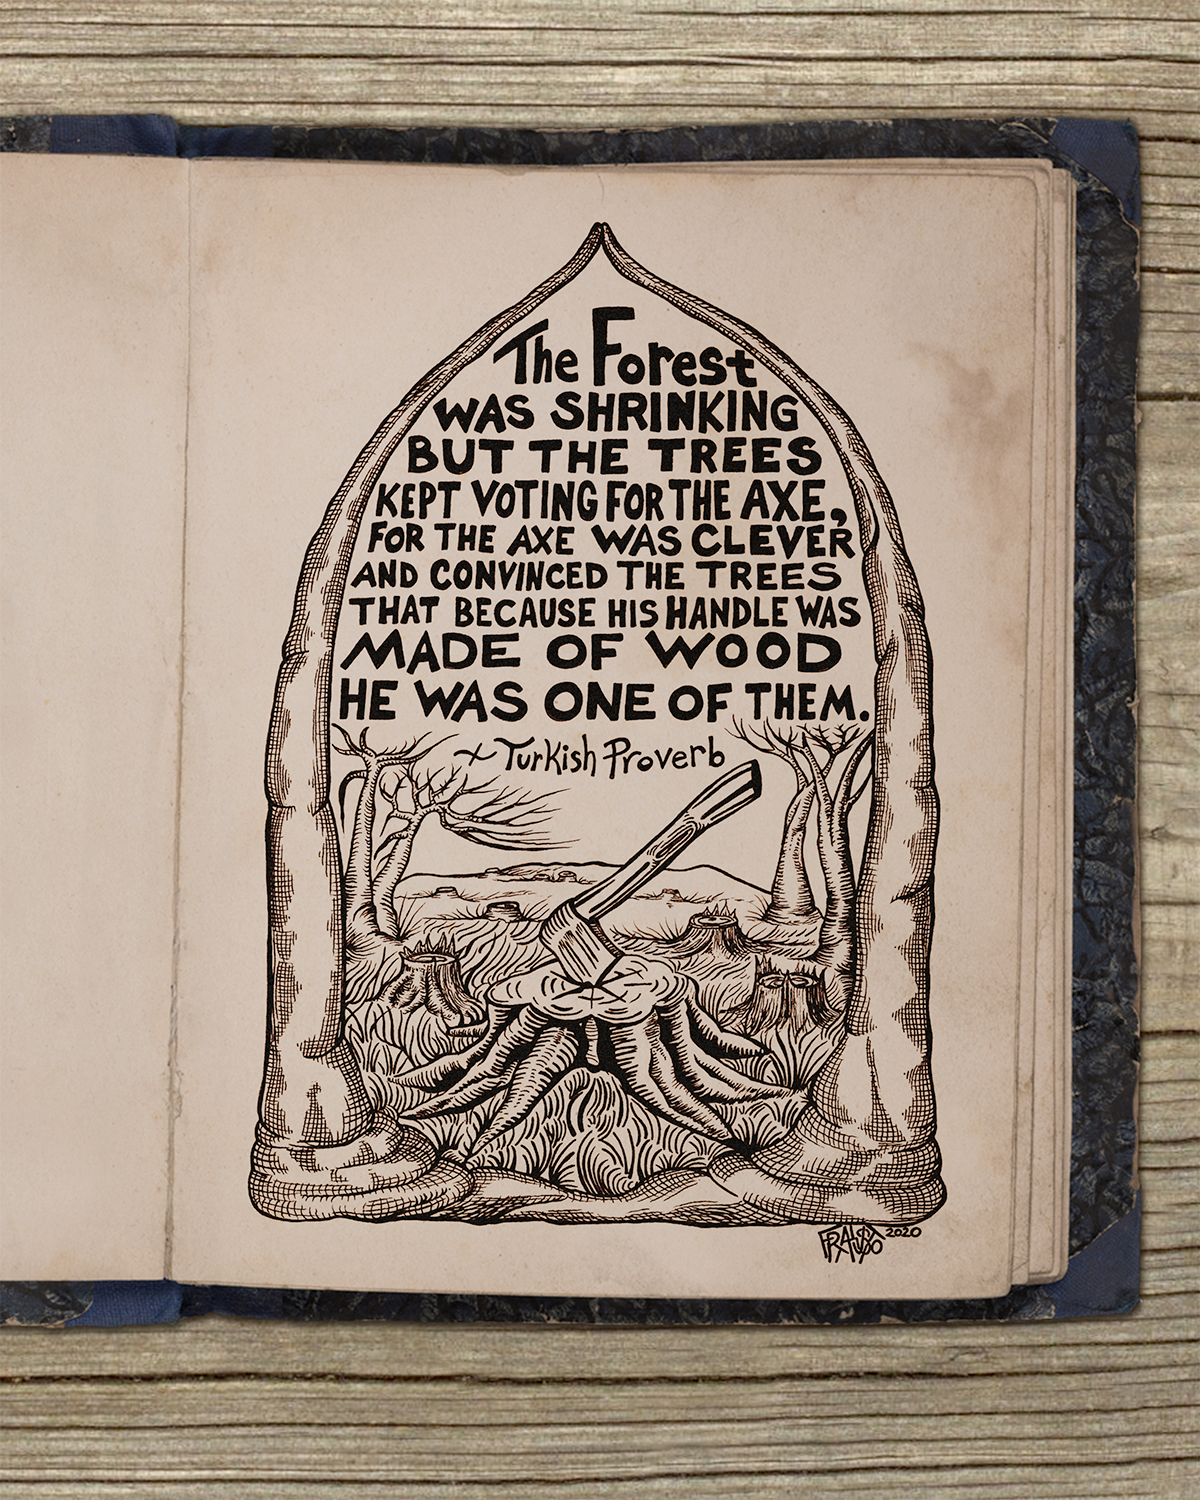 The Forest
WAS SHRINKING
BUT THE TREES
KEPT VOTING FOR THE AXE,
FOR THE AXE WAS CLEVER
AND CONVINCED THE TREES
THAT BECAUSE HIS HANDLE WAS
MADE OF WOOD
HE WAS ONE OF THEM.
~ Turkish Proverb
2020